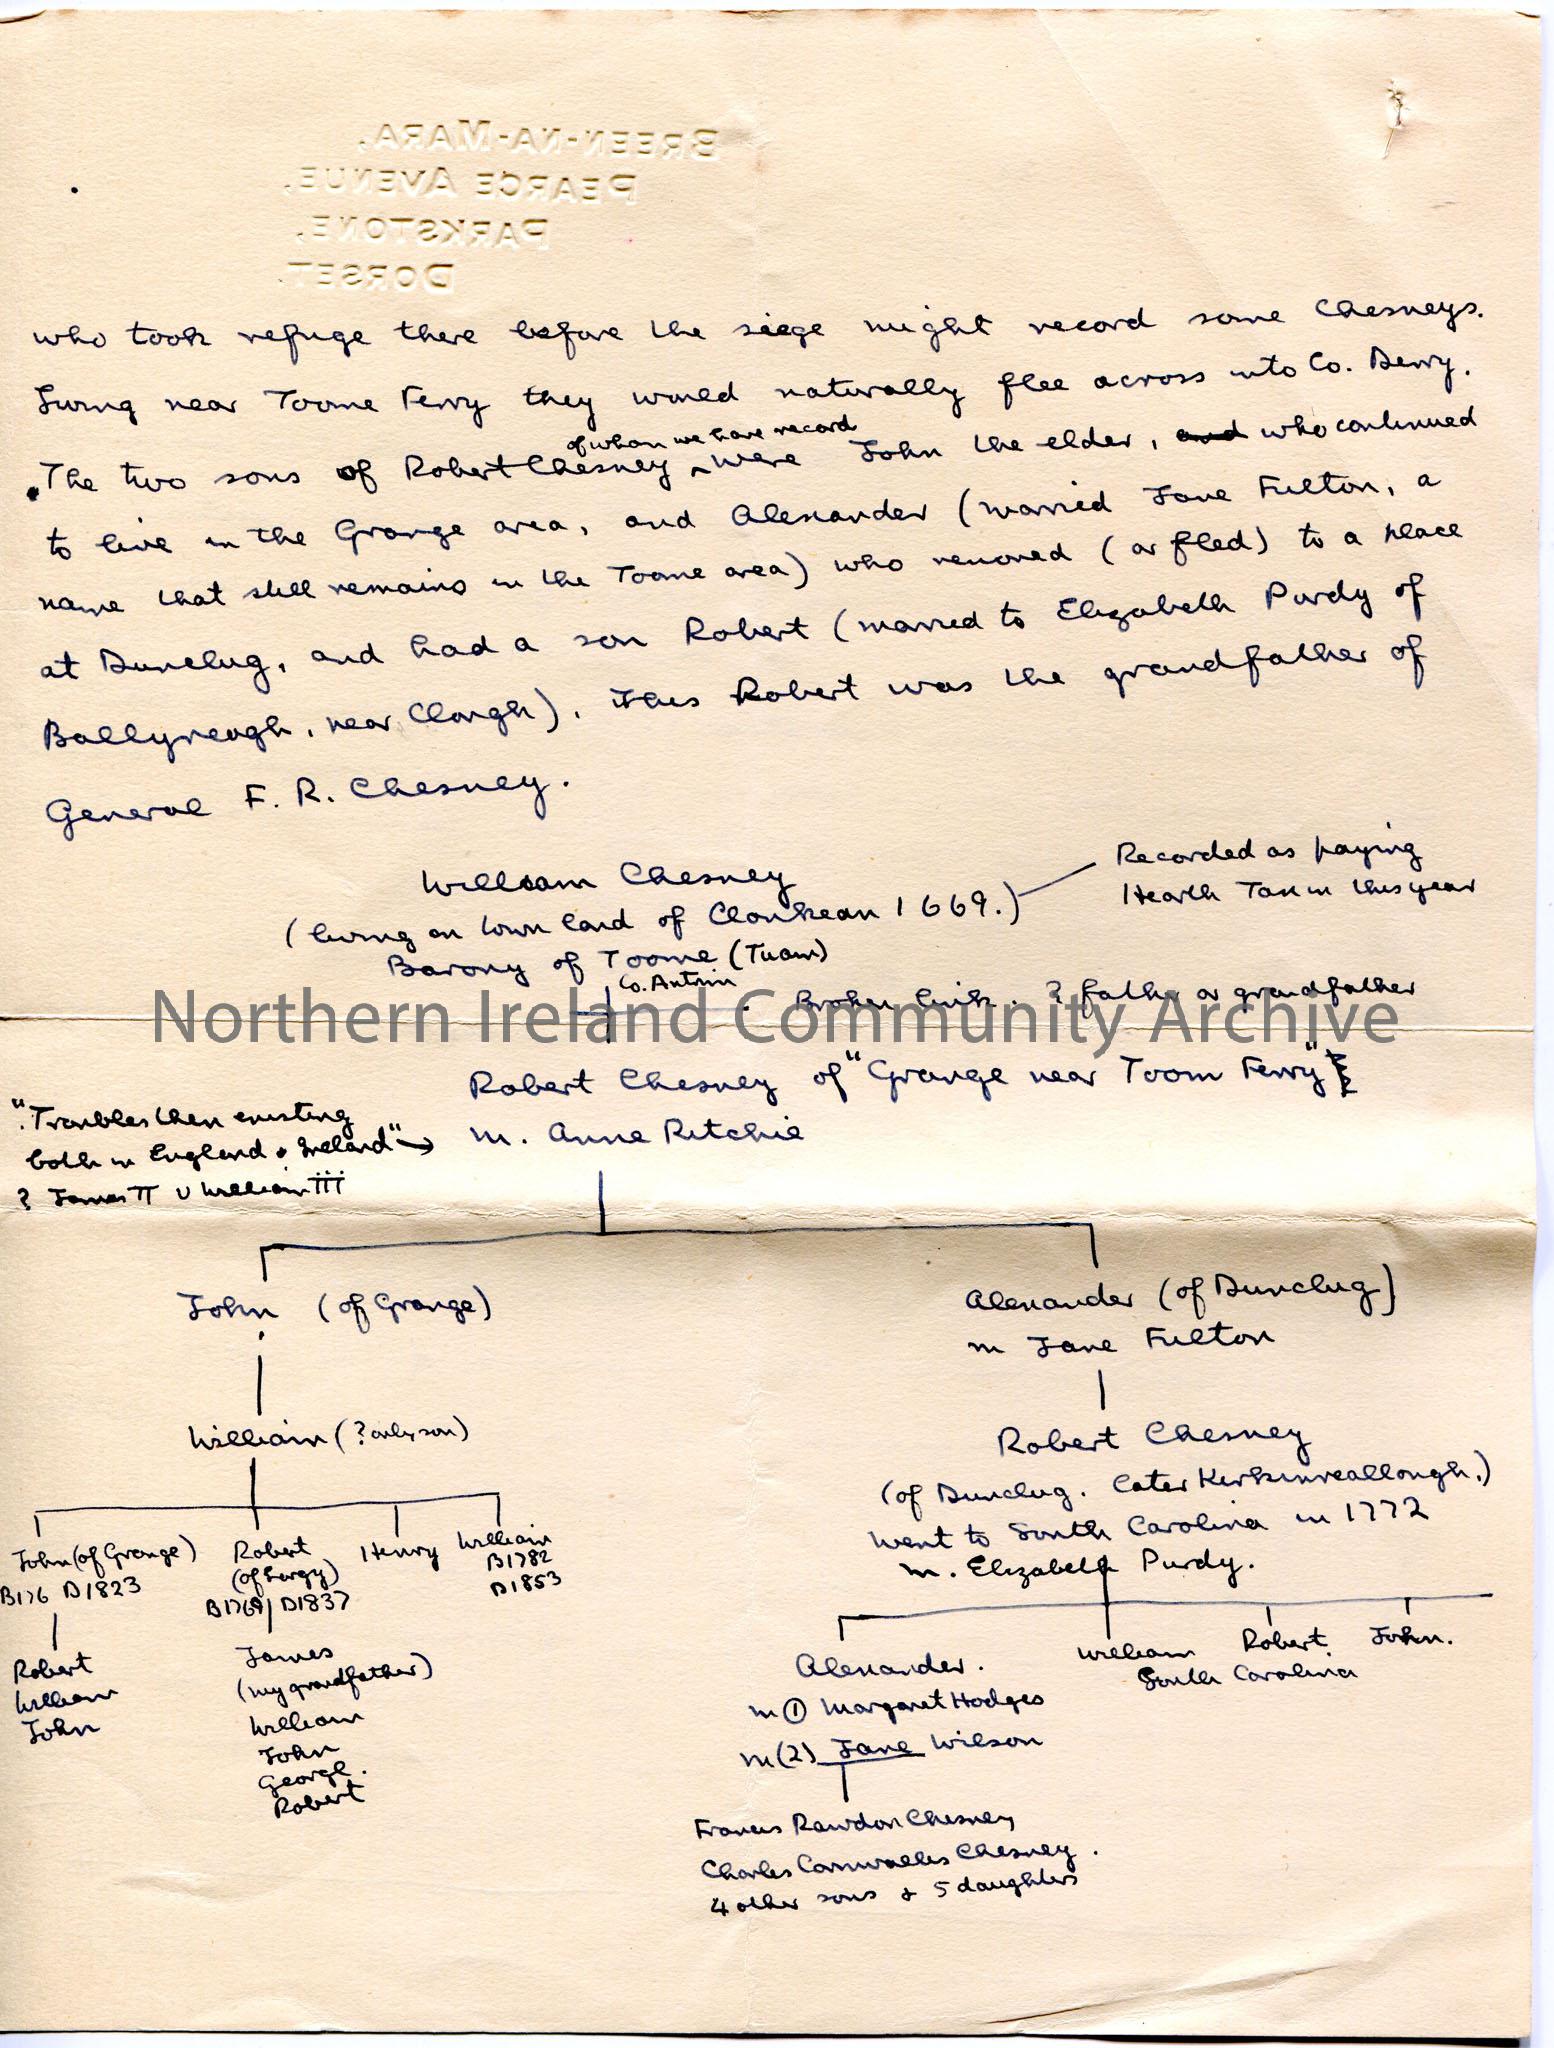 BREEN-NA-MARA,
PEARCE AVENUE,
PARKSTONE,
DORSET.
who took refuge there before the siege might record some Chesneys.
Living near Toome Ferry they would naturally flee across into Co. Derry.
of whom we have record
The two sons of Robert Chesney ^ were John the elder, and who continued
to live in the Grange area, and Alexander (married Jane Fulton, a
name that still remains in the Toome area) who removed (or fled) to a place
at Dunclug, and had a son Robert (married to Elizabeth Purdy of
Ballyreagh, near Clough). This Robert was the grandfather of
General F. R. Chesney.
William Chesney
(living on town land of Clonkean 1669.)
Barony of Toome (Tuam)
Co. Antrim
Recorded as paying
Hearth Tax in this year
Broken link. ? father or grandfather
Northern Ireland Community Archive
Robert Chesney of "Grange near Toom Ferry"
m. Anne Ritchie
"Troubles then existing
both in England & Ireland" →
? James II v William III
John (of Grange)
Alexander (of Dunclug)
m Jane Fulton
William (? only son)
Robert Chesney
(of Dunclug. Later Kirkinreallough.)
Went to South Carolina in 1772
m. Elizabeth Purdy.
John (of Grange)
B176 D1823
Robert
(of Lurgy)
B1769 D1837
Henry
William
B1782
D1853
Robert
William
John
James
(my grandfather)
William
John
George.
Robert
Alexander.
m ① Margaret Hodges
m (2) Jane Wilson
William Robert John.
South Carolina
Francis Rawdon Chesney
Charles Cornwallis Chesney.
4 other sons & 5 daughters